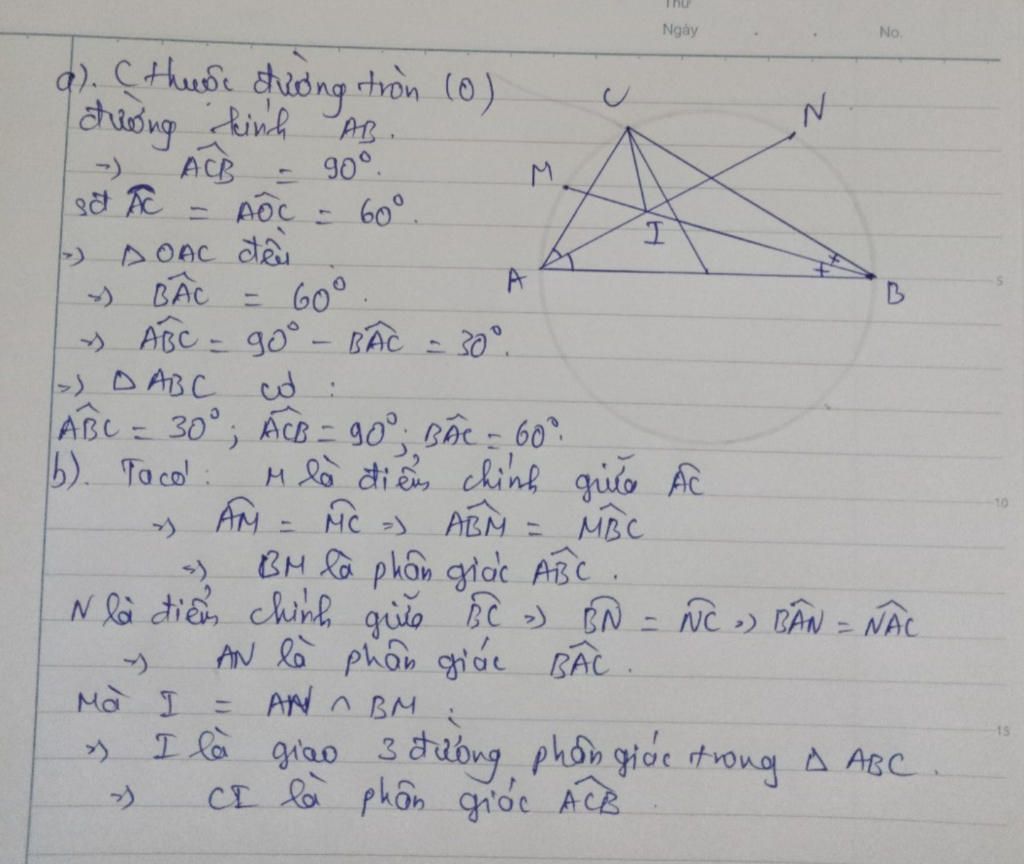 Thứ
Ngày . . No.
a). C thuộc đường tròn (O)
đường kính AB.
=> ∠ACB = 90°.
sđ AC = ∠AOC = 60°.
=> Δ OAC đều
=> ∠BAC = 60°.
=> ∠ABC = 90° - ∠BAC = 30°.
=> Δ ABC có :
∠ABC = 30°; ∠ACB = 90°; ∠BAC = 60°.
b). Ta có: M là điểm chính giữa AC
=> AM = MC => ∠ABM = ∠MBC
=> BM là phân giác ∠ABC.
N là điểm chính giữa BC => BN = NC => ∠BAN = ∠NAC
=> AN là phân giác ∠BAC.
Mà I = AN ∩ BM ;
=> I là giao 3 đường phân giác trong Δ ABC.
=> CI là phân giác ∠ACB.
C
N
M
I
A
B
5
10
15